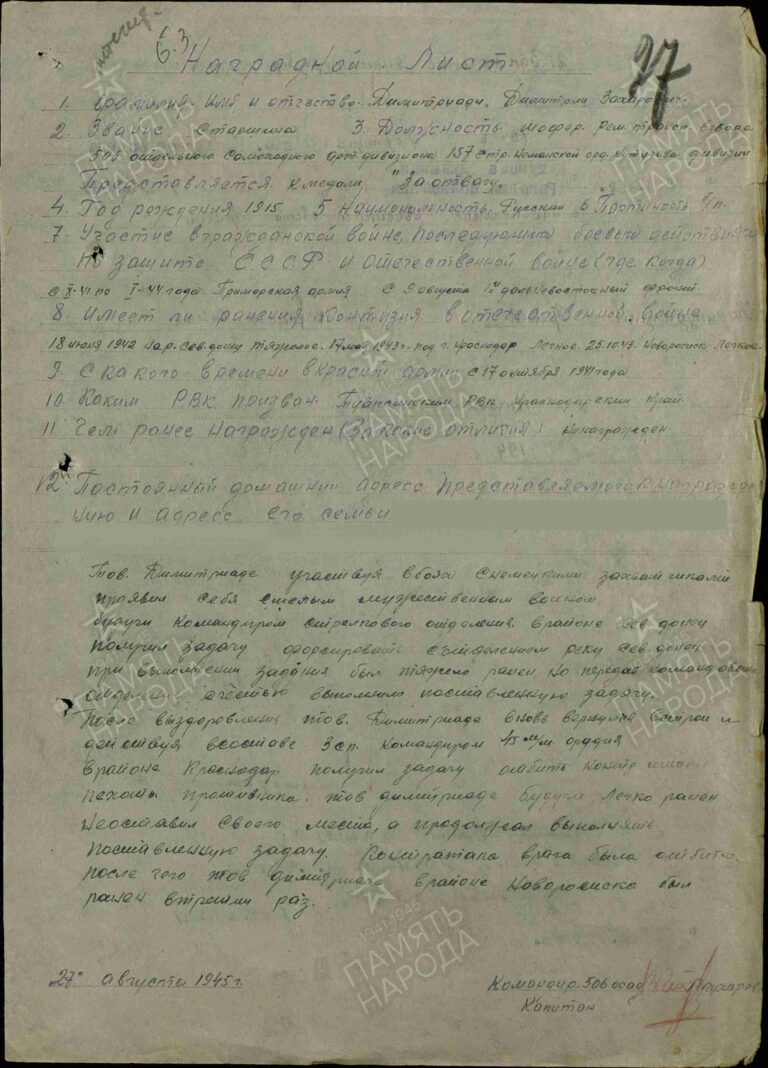 6.3
27
Наградной Лист
1. Фамилия, Имя и отчество Димитриади Димитрий Захарович
2. Звание Старшина 3. Должность шофер Рем. трансп. взвода
506 отдельного Самоходного арт. дивизиона 157 Стр. Неманской орд. Кутузова дивизии
Представляется к медали "За отвагу"
4. Год рождения 1915 5 Национальность Русский 6 Партийность б/п.
7. Участие в гражданской войне, последующих боевых действиях
по защите СССР и отечественной войне (где когда)
с X-41 по I-44 года Приморская армия С 9 августа 1й дальневосточный фронт
8. Имеет ли ранения контузия в отечественной войне
18 июля 1942 на р. Сев. донец тяжолое. 17 мая 1943г. под г. Краснодар Легкое. 25.10.43. Новоросийск Легкое
9. С какого времени в красной армии с 17 октября 1941 года
10. Каким РВК призван Туапсинским РВК Краснодарский Край
11 Чем ранее награжден (за какие отличия) не награжден
12. Постоянный домашний адресс представляемого к награжде
нию и адресс его семьи
Тов. Димитриаде участвуя в боях с немецкими захватчиками
проявил себя смелым мужественым воином
будучи командиром стрелкового отделения в районе Сев. донец
получил задачу форсировать с отделением реку сев. донец
при выполнении задания был тяжело ранен но передав командование
отделение с честью выполнило поставленную задачу.
После выздоровления тов. Димитриаде вновь вернулся в строй и
действуя в составе 3 сп. командиром 45 м/м орудия
в районе Краснодар получил задачу отбить контратаки
пехоты противника. тов димитриаде будучи Легко ранен
не оставил своего места, а продолжал выполнять
поставленную задачу. Контратака врага была отбита
после чего тов димитриаде в районе Новоросийска был
ранен в третий раз.
27" августа 1945г
Командир 506 осад
Капитан
ПАМЯТЬ НАРОДА
1941-1945